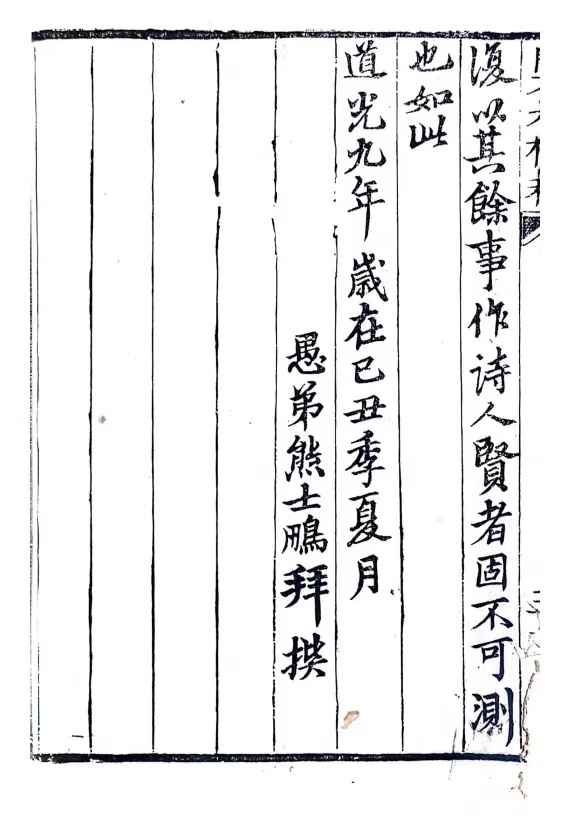 復以其餘事作诗人賢者固不可測
也如此
道光九年歲在已丑季夏月
愚弟熊士鵬拜撰